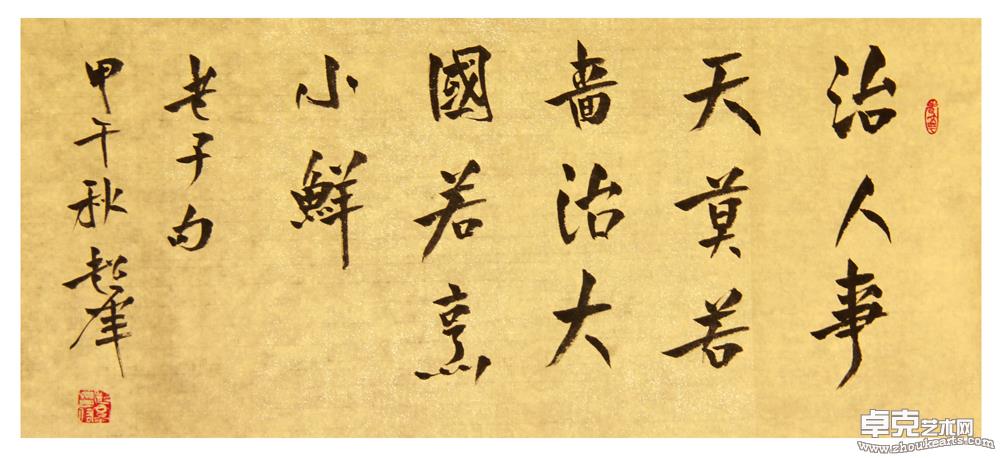 治人事
天莫若
嗇治大
國若烹
小鮮
老子句
甲午秋
卓克艺术网
www.zhoukearts.com